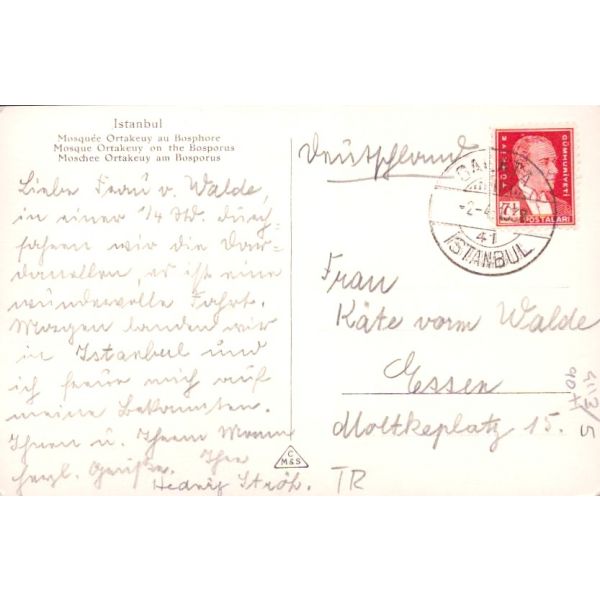 Istanbul
Mosquée Ortakeuy au Bosphore
Mosque Ortakeuy on the Bosporus
Moschee Ortakeuy am Bosporus
Liebe Frau v. Walde,
in einer 1/4 Std. durch-
fahren wir die Dar-
danellen, es ist eine
wundervolle Fahrt.
Morgen landen wir
in Istanbul und
ich freue mich auf
meine Bekannten.
Ihnen u. Ihrem Mann
herzl. Grüße. Ihre
Hedwig Ströh.
C
M&S
Deutschland
TÜRKİYE
CÜMHURİYETİ
POSTALARI
GALATA
41
ISTANBUL
Frau
Käte vorm Walde
Essen
Moltkeplatz 15.
TR